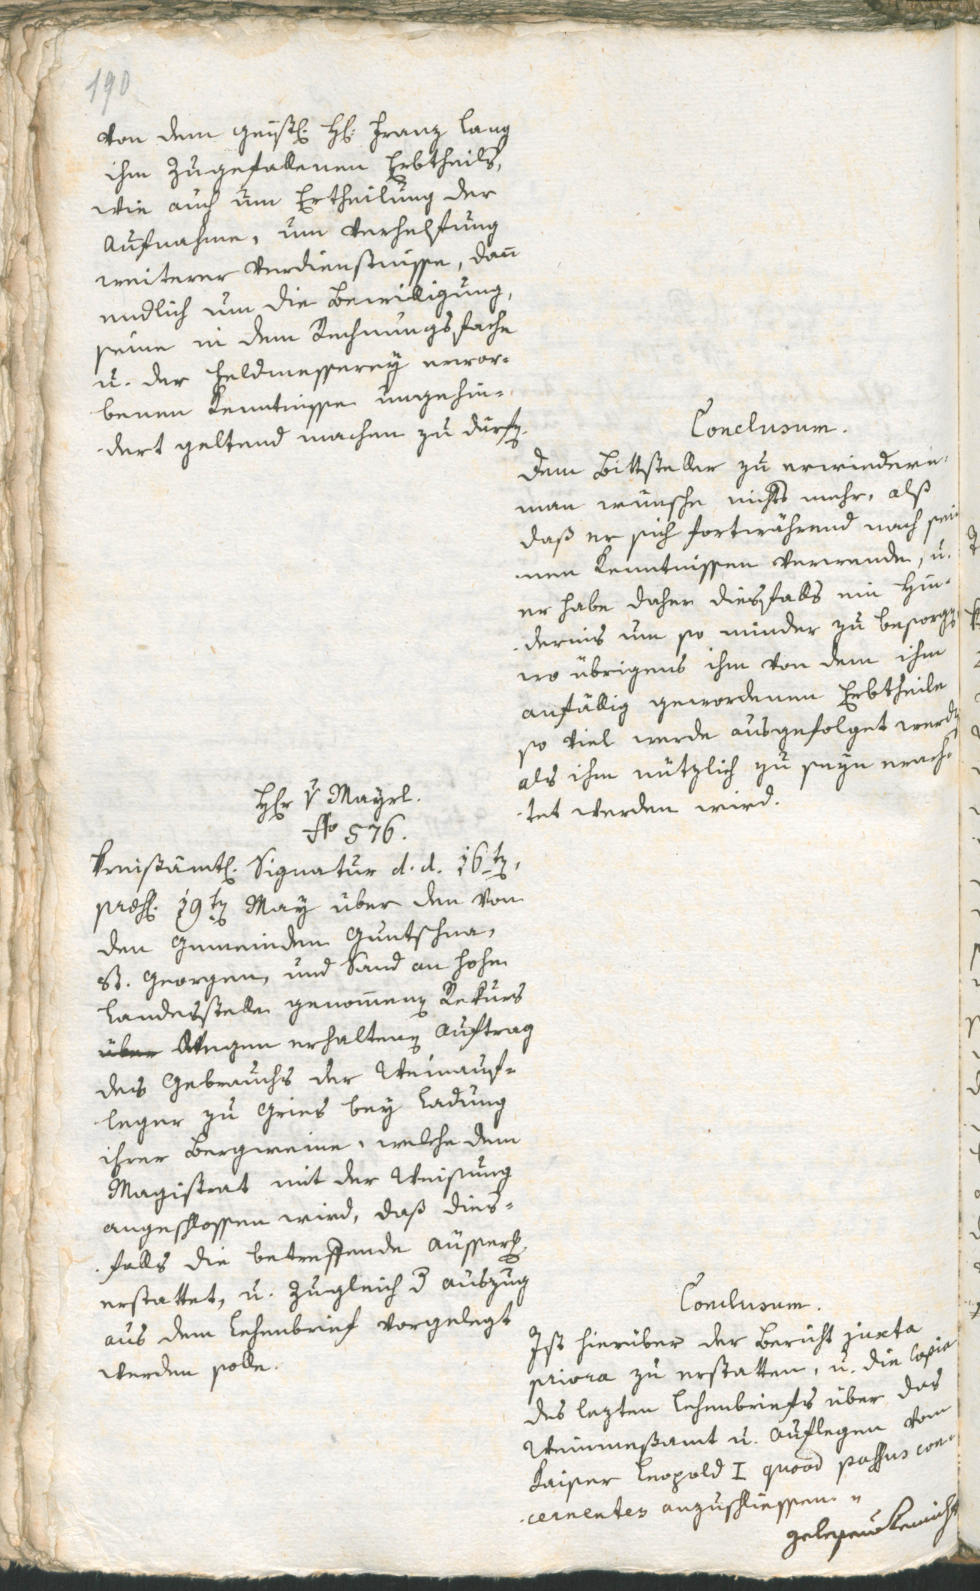 190
von dem geistl: H: Franz Lang
ihm zugefallenen Erbtheils,
wie auch um Ertheilung der
Aufnahme, um Verhelfung
weiterer Verdienstnisse, dann
endlich um die Bewilligung,
seine in dem Rechnungsfache
u. der Feldmesserey erwor=
benen Kenntnisse ungehin=
dert geltend machen zu dürfen.
Conclusum.
Dem Bittsteller zu erwiedern
man wünsche nichts mehr, alß
daß er sich fortwährend nach sei
nen Kenntnissen verwende, u.
er habe daher diesfalls ein Hin=
dernis um so minder zu besorgen
wo übrigens ihm von dem ihm
anfällig gewordenen Erbtheile
so viel werde ausgefolget werden
als ihm nützlich zu seyn erach=
tet werden wird.
Herr v Mayrl.
No 576.
Kreisämtl. Signatur d. d. 16ten,
praes. 19ten May über den von
den Gemeinden Guntschna,
St. Georgen, und Sand an hohe
Landesstelle genommenen Rekurs
über Wegen erhaltenen Auftrag
des Gebrauchs der Weinauf=
leger zu Gries bey Ladung
ihrer Bergweine, welche dem
Magistrat mit der Weisung
angeschlossen wird, daß dies=
falls die betreffende Äusserung
erstattet, u. zugleich der Auszug
aus dem Lehenbrief vorgelegt
werden solle.
Conclusum.
Ist hierüber der Bericht juxta
priora zu erstatten, u. die Copie
des lezten Lehenbriefs über das
Weinmeßamt u. Auflegen vom
Kaiser Leopold I quoad passus con=
cernentes anzuschliessen.